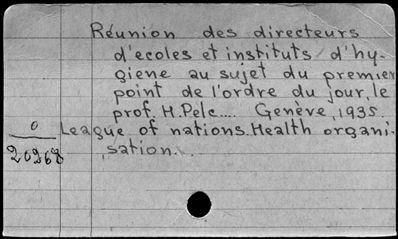 Réunion des directeurs
d'ecoles et instituts d'hy-
giene au sujet du premier
point de l'ordre du jour, le
prof. H. Pelc.... Genève, 1935
o
League of nations. Health organi-
20268
sation...